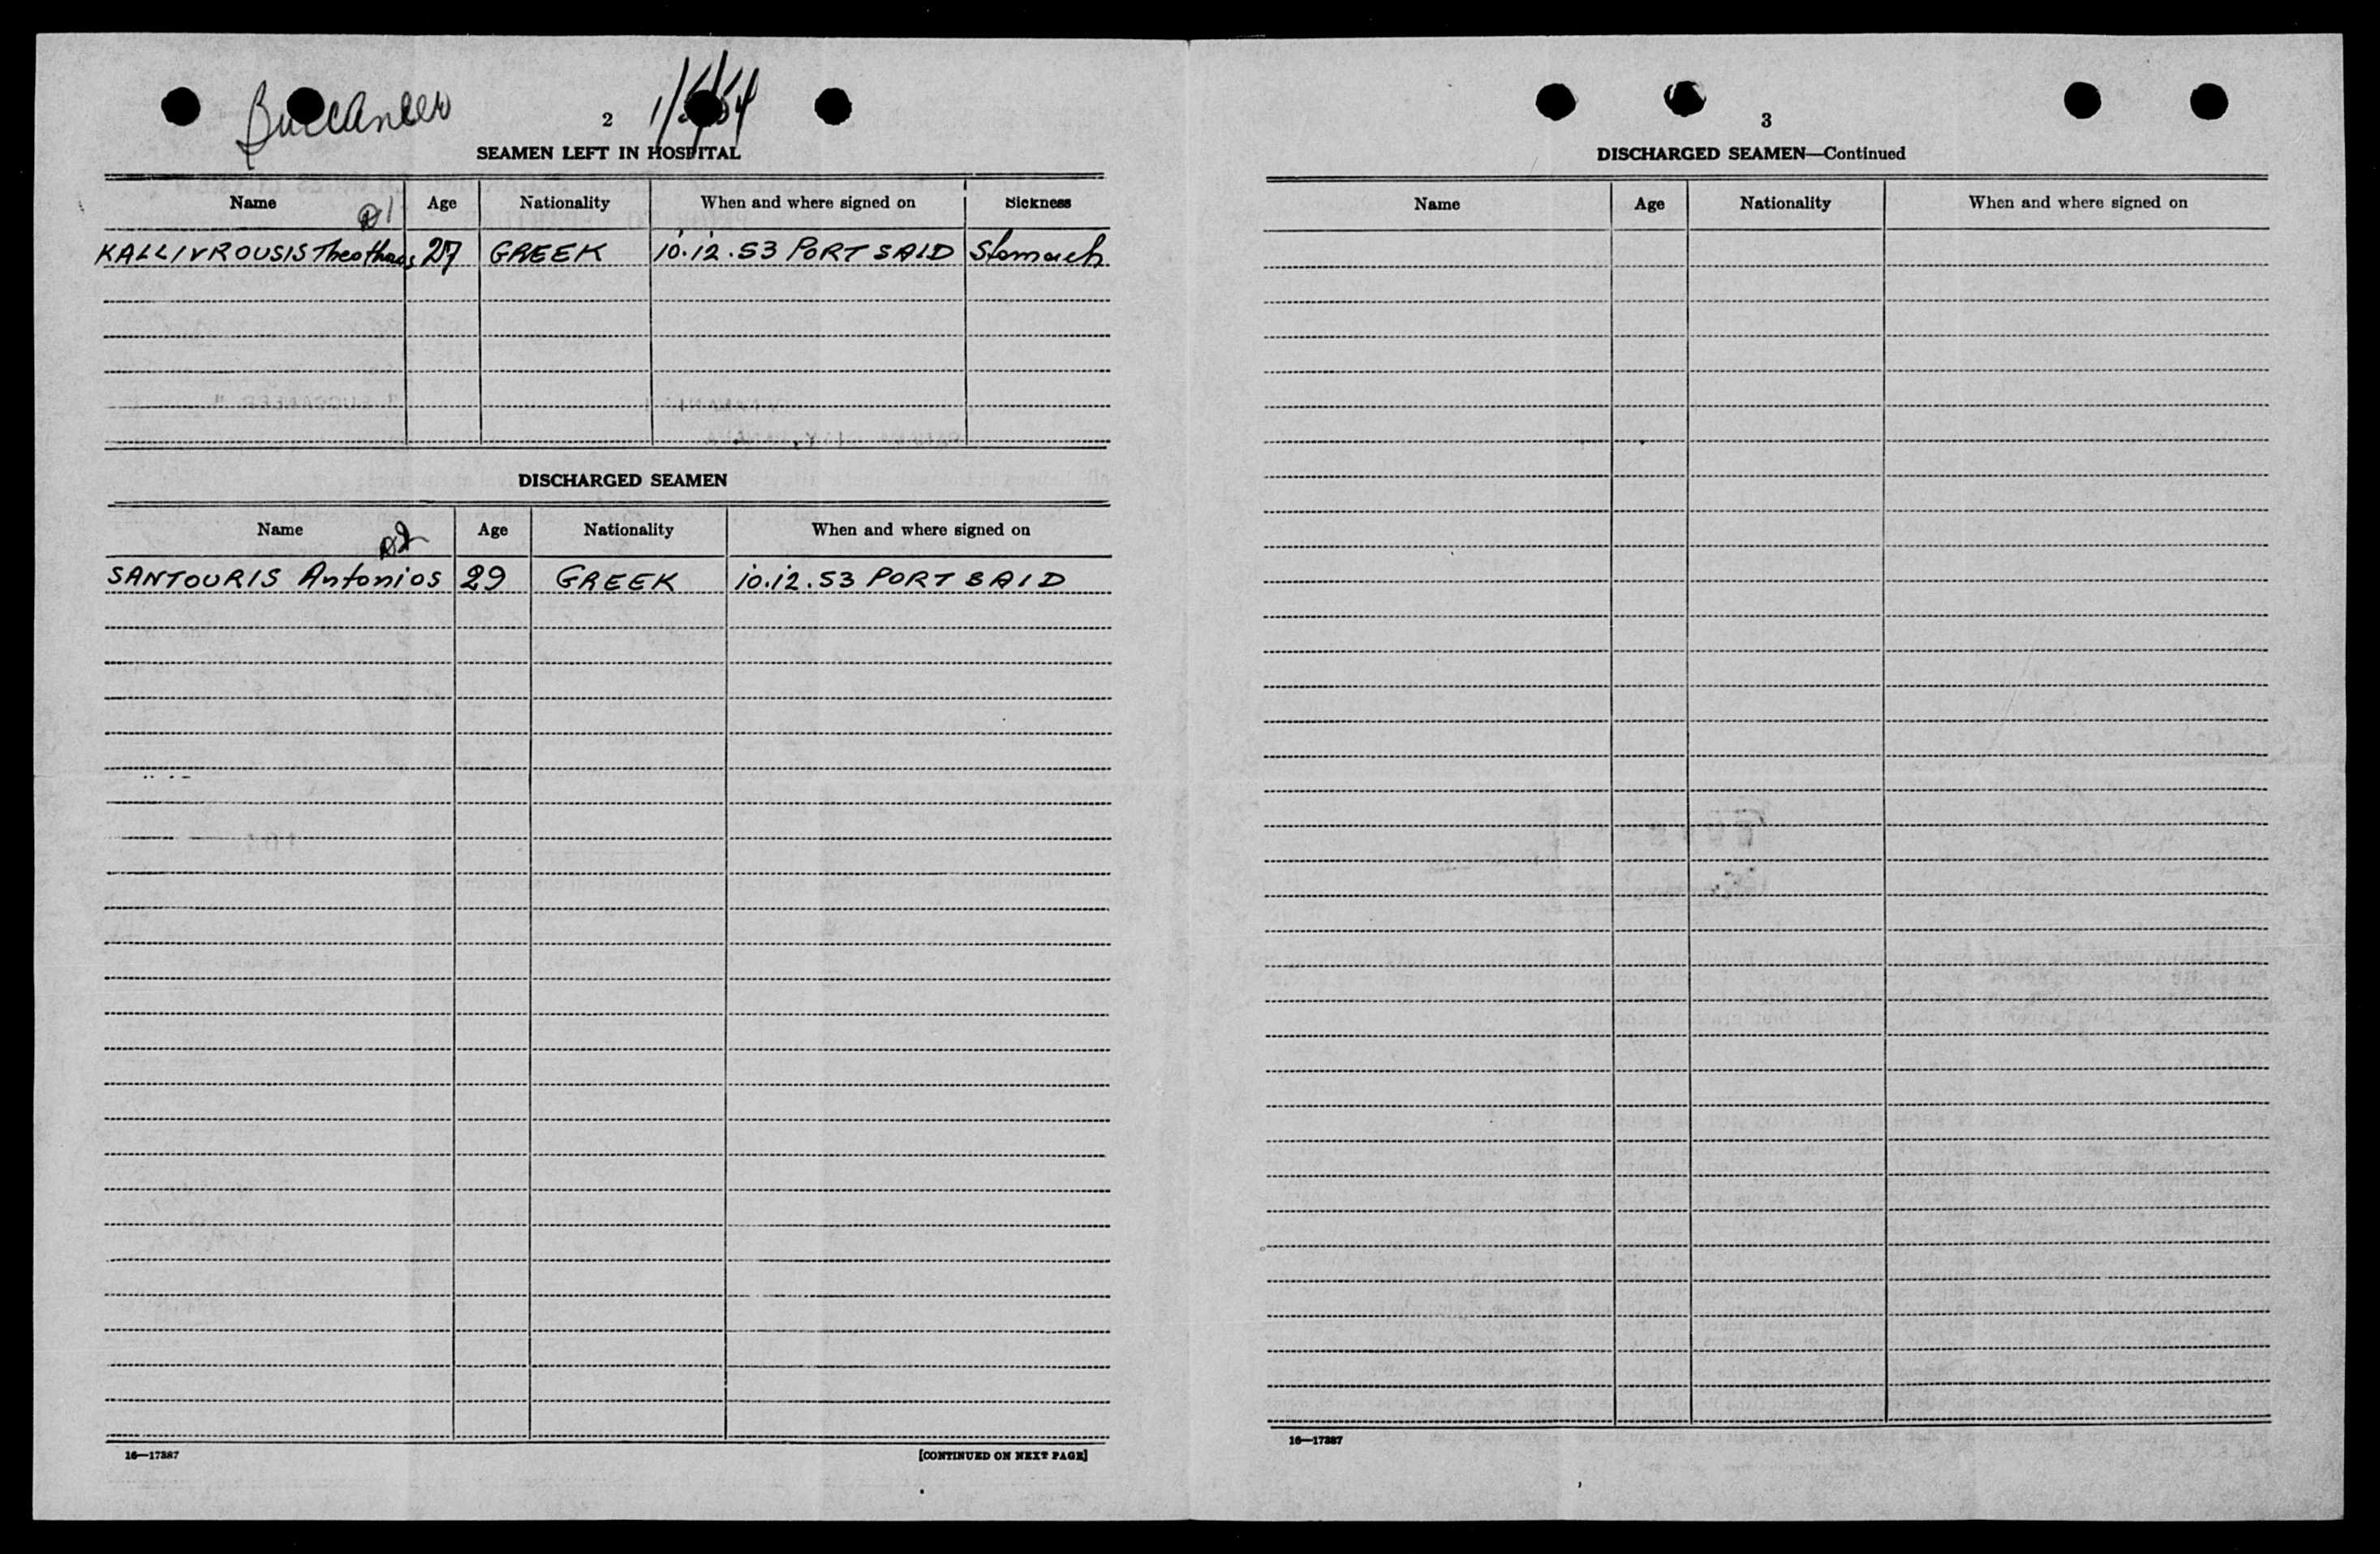 Buccaneer
2
SEAMEN LEFT IN HOSPITAL
Name Age Nationality When and where signed on Sickness
KALLIVROUSIS 27 GREEK 10.12.53 PORT SAID Stomach
DISCHARGED SEAMEN
Name Age Nationality When and where signed on
SANTOURIS Antonios 29 GREEK 10.12.53 PORT SAID
16—17387
[CONTINUED ON NEXT PAGE]
3
DISCHARGED SEAMEN—Continued
Name Age Nationality When and where signed on
16—17387